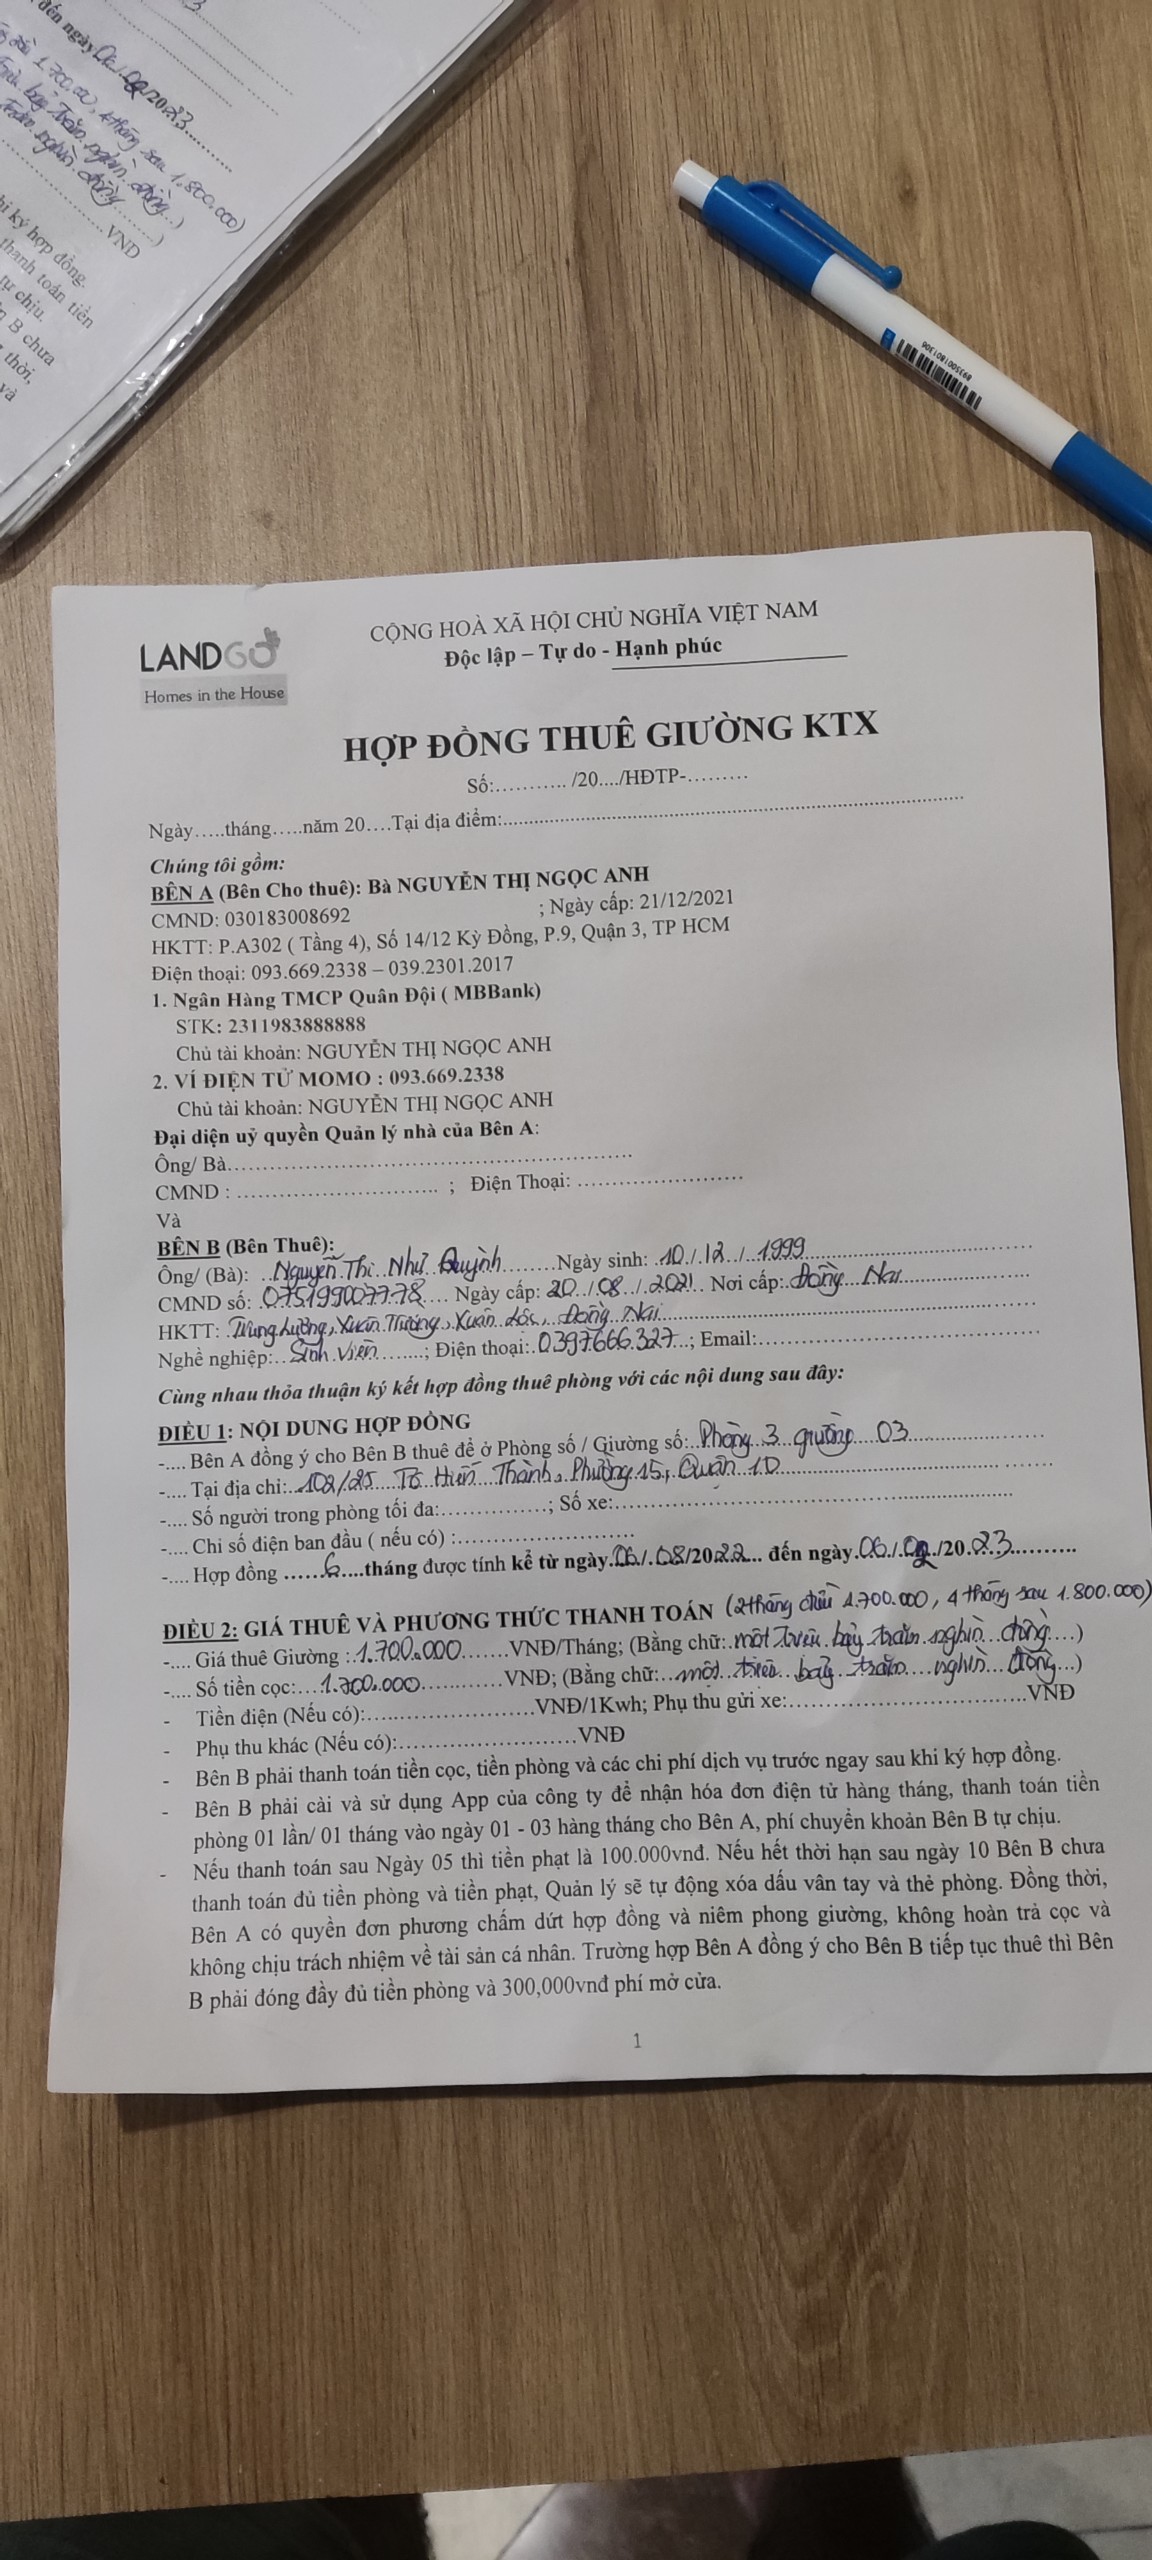 đến ngày 06/02/2023
1.700.000, 4 tháng sau 1.800.000)
bảy trăm nghìn đồng)
trăm nghìn đồng)
VND
hi ký hợp đồng.
thanh toán tiền
tự chịu.
n B chưa
thời,
và
8935001801306
LANDGO
Homes in the House
CỘNG HOÀ XÃ HỘI CHỦ NGHĨA VIỆT NAM
Độc lập – Tự do - Hạnh phúc
HỢP ĐỒNG THUÊ GIƯỜNG KTX
Số:........... /20..../HĐTP-.........
Ngày.....tháng.....năm 20....Tại địa điểm:...........
Chúng tôi gồm:
BÊN A (Bên Cho thuê): Bà NGUYỄN THỊ NGỌC ANH
CMND: 030183008692 ; Ngày cấp: 21/12/2021
HKTT: P.A302 ( Tầng 4), Số 14/12 Kỳ Đồng, P.9, Quận 3, TP HCM
Điện thoại: 093.669.2338 – 039.2301.2017
1. Ngân Hàng TMCP Quân Đội ( MBBank)
STK: 2311983888888
Chủ tài khoản: NGUYỄN THỊ NGỌC ANH
2. VÍ ĐIỆN TỬ MOMO : 093.669.2338
Chủ tài khoản: NGUYỄN THỊ NGỌC ANH
Đại diện uỷ quyền Quản lý nhà của Bên A:
Ông/ Bà...........
CMND : ........... ; Điện Thoại: ...........
Và
BÊN B (Bên Thuê):
Ông/ (Bà): Nguyễn Thị Như Quỳnh Ngày sinh: 10/12/1999
CMND số: 075199007778 Ngày cấp: 20/08/2021 Nơi cấp: Đồng Nai
HKTT: Trung Lương, Xuân Trường, Xuân Lộc, Đồng Nai
Nghề nghiệp: Sinh viên ; Điện thoại: 0397666327 ; Email:...........
Cùng nhau thỏa thuận ký kết hợp đồng thuê phòng với các nội dung sau đây:
ĐIỀU 1: NỘI DUNG HỢP ĐỒNG
-.... Bên A đồng ý cho Bên B thuê để ở Phòng số / Giường số: Phòng 3 giường 03
-.... Tại địa chỉ: 102/25 Tô Hiến Thành, Phường 15, Quận 10
-.... Số người trong phòng tối đa:...........; Số xe:...........
-.... Chỉ số điện ban đầu ( nếu có) :...........
-.... Hợp đồng ......6....tháng được tính kể từ ngày 06/08/2022... đến ngày 06/02/2023
ĐIỀU 2: GIÁ THUÊ VÀ PHƯƠNG THỨC THANH TOÁN (2 tháng đầu 1.700.000, 4 tháng sau 1.800.000)
-.... Giá thuê Giường : 1.700.000 VNĐ/Tháng; (Bằng chữ: một triệu bảy trăm nghìn đồng)
-.... Số tiền cọc: 1.700.000 VNĐ; (Bằng chữ: một triệu bảy trăm nghìn đồng)
- Tiền điện (Nếu có):...........VNĐ/1Kwh; Phụ thu gửi xe:...........VNĐ
- Phụ thu khác (Nếu có):...........VNĐ
- Bên B phải thanh toán tiền cọc, tiền phòng và các chi phí dịch vụ trước ngay sau khi ký hợp đồng.
- Bên B phải cài và sử dụng App của công ty để nhận hóa đơn điện tử hàng tháng, thanh toán tiền
phòng 01 lần/ 01 tháng vào ngày 01 - 03 hàng tháng cho Bên A, phí chuyển khoản Bên B tự chịu.
- Nếu thanh toán sau Ngày 05 thì tiền phạt là 100.000vnđ. Nếu hết thời hạn sau ngày 10 Bên B chưa
thanh toán đủ tiền phòng và tiền phạt, Quản lý sẽ tự động xóa dấu vân tay và thẻ phòng. Đồng thời,
Bên A có quyền đơn phương chấm dứt hợp đồng và niêm phong giường, không hoàn trả cọc và
không chịu trách nhiệm về tài sản cá nhân. Trường hợp Bên A đồng ý cho Bên B tiếp tục thuê thì Bên
B phải đóng đầy đủ tiền phòng và 300,000vnđ phí mở cửa.
1